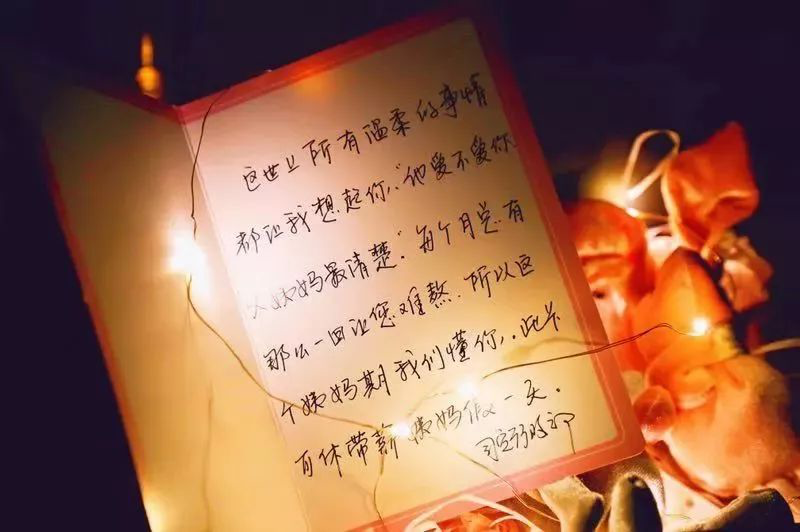 这世上所有温柔的事情
都让我想起你,"他爱不爱你
姨妈最清楚"每个月总有
那么一回让您难熬.所以这
个姨妈期我们懂你,.此卡
可休带薪姨妈假一天.